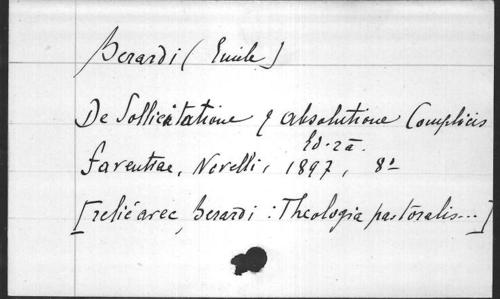 Berardi (Emile)
De Sollicitatione & absolutione Complicis
Ed. 2a.
Faventiae, Novelli, 1897, 8°
[relié avec Berardi : Theologia pastoralis...]